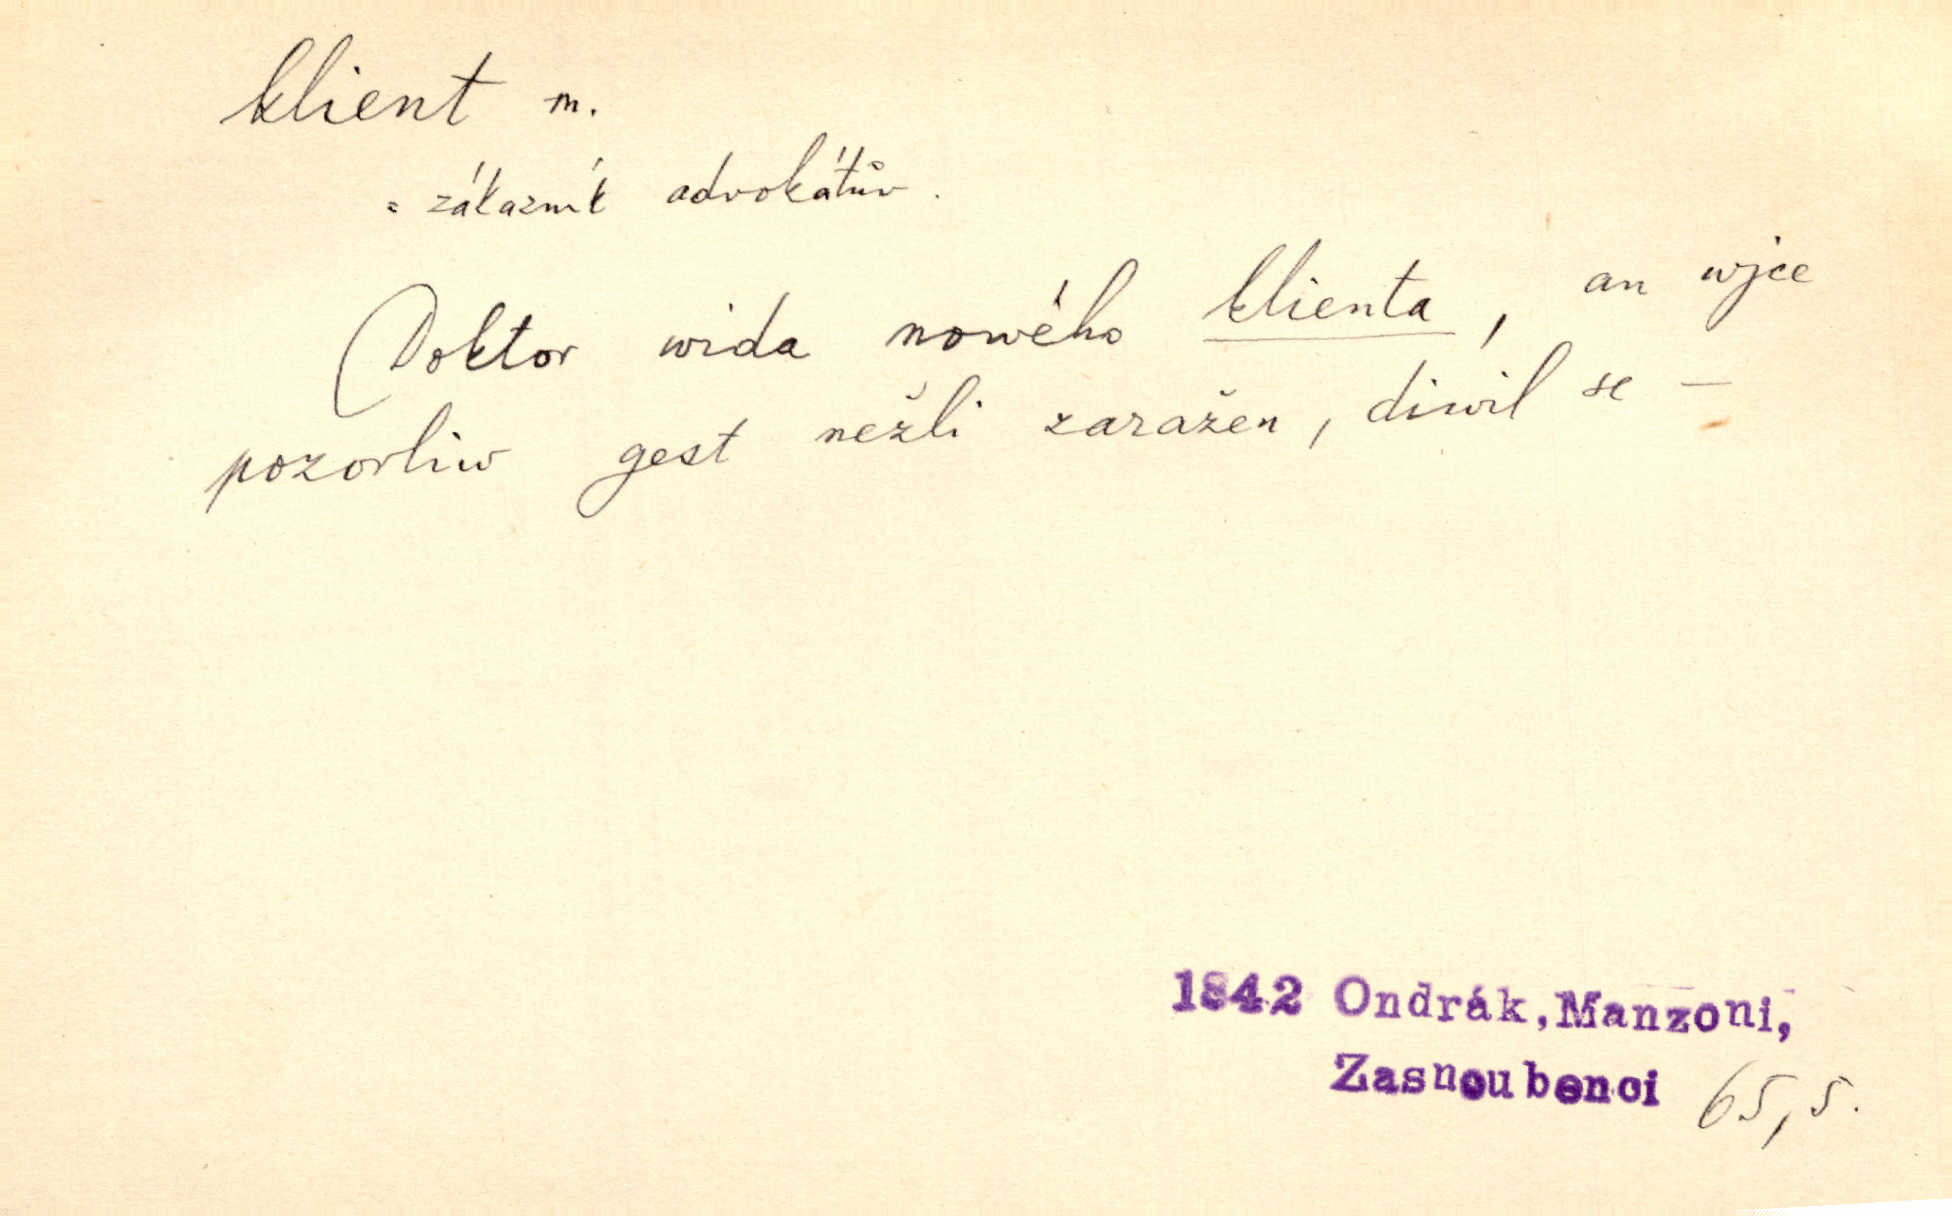 klient m.
= zákazník advokátův.
Doktor wida nowého klienta, an wjce
pozorliw gest nežli zaražen, diwil se —
1842 Ondrák, Manzoni,
Zasnoubenci 65,5.